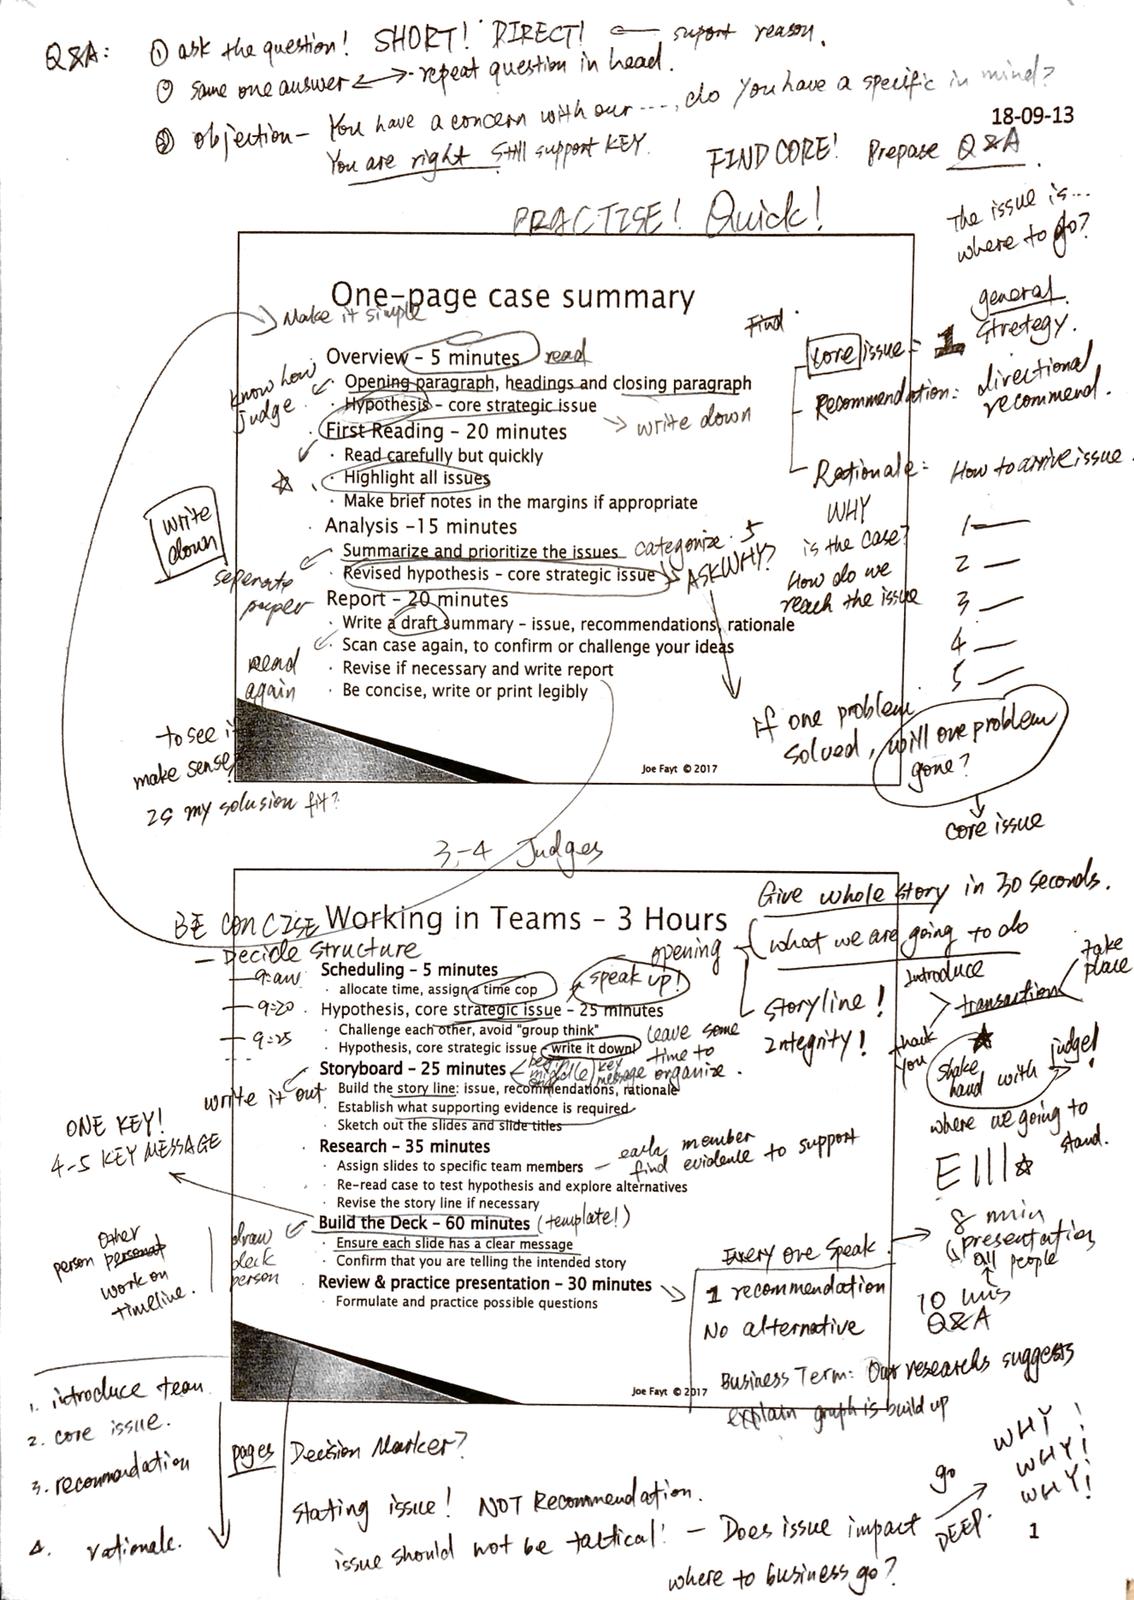 Q&A: ① ask the question! SHORT! DIRECT! ← suport reason.
② same one answer ↔ repeat question in head.
③ objection - You have a concern with our ...., do you have a specific in mind?
You are right Still support KEY.
18-09-13
FIND CORE! Prepase Q&A
PRACTISE! Quick!
The issue is...
where to go?
One-page case summary
Make it simple
Overview - 5 minutes read
know how
judge.
· Opening paragraph, headings and closing paragraph
· Hypothesis - core strategic issue
→ write down
First Reading - 20 minutes
· Read carefully but quickly
· Highlight all issues
· Make brief notes in the margins if appropriate
Analysis -15 minutes
· Summarize and prioritize the issues categorize. 5
· Revised hypothesis - core strategic issue → ASK WHY?
Report - 20 minutes
· Write a draft summary - issue, recommendations, rationale
· Scan case again, to confirm or challenge your ideas
· Revise if necessary and write report
· Be concise, write or print legibly
Joe Fayt © 2017
write
down
seperate
paper
read
again
to see if
make sense
Is my solusion fit?
Find
core issue = 1 general
Stretegy.
Recommendation: directional
recommend.
Rationale: How to arrive issue.
WHY
is the case?
How do we
reach the issue
1—
2 —
3 —
4 —
5 —
if one problem
solved, will one problem
gone?
core issue
3-4 Judges
BE CONCISE
Working in Teams - 3 Hours
— Decide structure
Scheduling - 5 minutes
· allocate time, assign a time cop speak up!
9:20
Hypothesis, core strategic issue - 25 minutes
· Challenge each other, avoid "group think"
9:25
· Hypothesis, core strategic issue - write it down
leave some
time to
organize.
Storyboard - 25 minutes
key
message
write it out
· Build the story line: issue, recommendations, rationale
· Establish what supporting evidence is required
· Sketch out the slides and slide titles
Research - 35 minutes
· Assign slides to specific team members — each member
find evidence to support
· Re-read case to test hypothesis and explore alternatives
· Revise the story line if necessary
Build the Deck - 60 minutes (template!)
· Ensure each slide has a clear message
· Confirm that you are telling the intended story
Review & practice presentation - 30 minutes
· Formulate and practice possible questions
Joe Fayt © 2017
ONE KEY!
4-5 KEY MESSAGE
draw
deck
person
Other
person personat
work on
timeline.
Give whole story in 30 seconds.
opening
what we are going to do
storyline!
Integrity!
Introduce
transaction
take
place
thank
you
shake
hand with judge!
where we going to
stand.
E III☆
Every one speak.
1 recommendation
No alternative
Business Term: Our researchs suggests
explain graph is build up
8 min
presentation
all people
10 mins
Q&A
1. introduce team
2. core issue.
3. recommandation
4. rationale.
pages
Decision Marker?
Stating issue! NOT Recommendation.
issue should not be tactical! — Does issue impact
where to business go?
go
DEEP.
WHY!
WHY!
WHY!
1